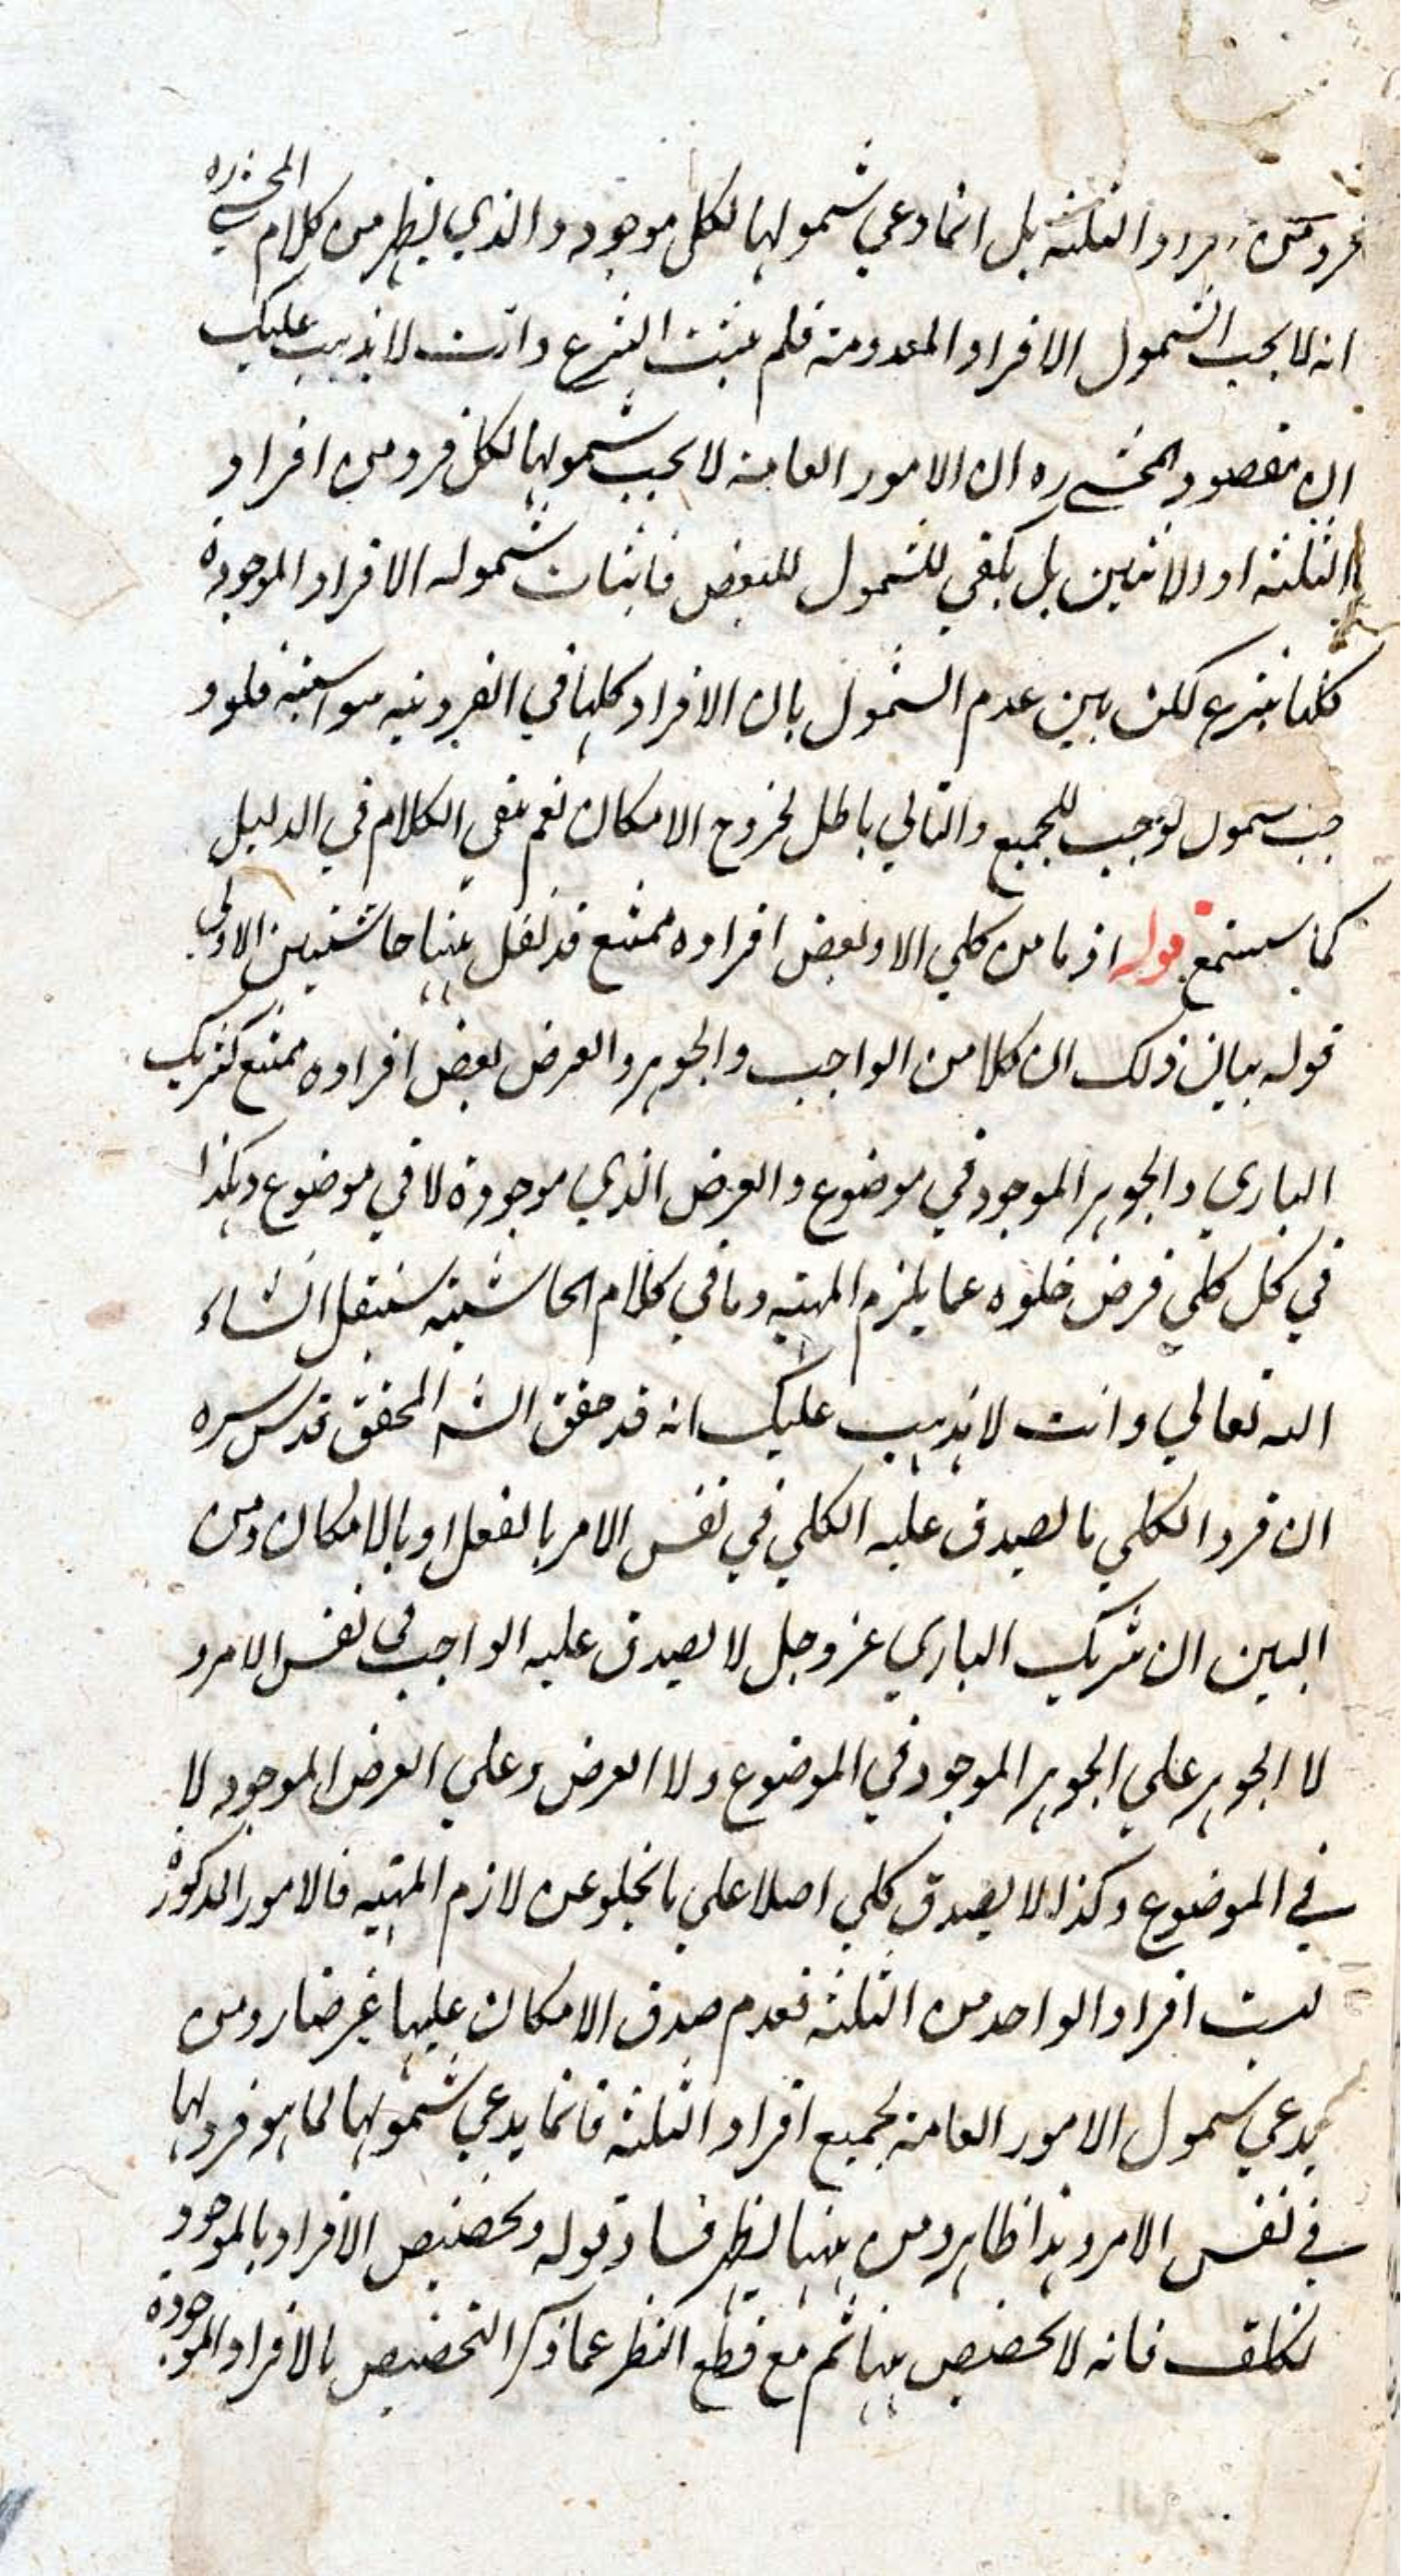 فرد من افراد الثلثة بل انما ادعي شمولها لكل موجود والذي يظهر من كلام المحشي ره
انه لا يجب الشمول الافراد المعدومة فلم يثبت النزع وانت لا يذهب عليك
ان مقصود المحشي ره ان الامور العامة لا يجب شمولها لكل فرد من افراد
الثلثة او الاثنين بل يكفي للشمول للبعض فاثبات شموله الافراد الموجودة
كلها نزع لكن بين عدم الشمول بان الافراد كلها في الفردية سواسية فلو و
جب شمول لوجب للجميع والتالي باطل لخروج الامكان نعم بقي الكلام في الدليل
كما سيستمع قوله اذ ما من كلي الا وبعض افراده ممتنع قد نقل عنها حاشيتين الاولى
قوله بيان ذلك ان كلا من الواجب والجوهر والعرض بعض افراده ممتنع كشريك
الباري والجوهر الموجود في موضوع والعرض الذي موجودة لا في موضوع وهكذا
في كل كلي فرض خلوه عما يلزم المهية وما في كلام الحاشية سينقل انشاء
الله تعالي وانت لا يذهب عليك انه قد حقق الشه المحقق قدس سره
ان فرد الكلي ما يصدق عليه الكلي في نفس الامر بالفعل او بالامكان ومن
البين ان شريك الباري عز وجل لا يصدق عليه الواجب في نفس الامر و
لا الجوهر علي الجوهر الموجود في الموضوع ولا العرض وعلي العرض الموجود لا
في الموضوع وكذا لا يصدق كلي اصلا علي ما يخلو عن لازم المهية فالامور المذكورة
ليست افراد الواحد من الثلثة فعدم صدق الامكان عليها غير ضار ومن
يدعي شمول الامور العامة لجميع افراد الثلثة فانما يدعي شمولها لما هو فرد لها
في نفس الامر وهذا ظاهر ومن ههنا يظهر فساد قوله وتخصيص الافراد بالموجود
تكلف فانه لا تخصيص ههنا ثم مع قطع النظر عما ذكر التخصيص بالافراد الموجودة